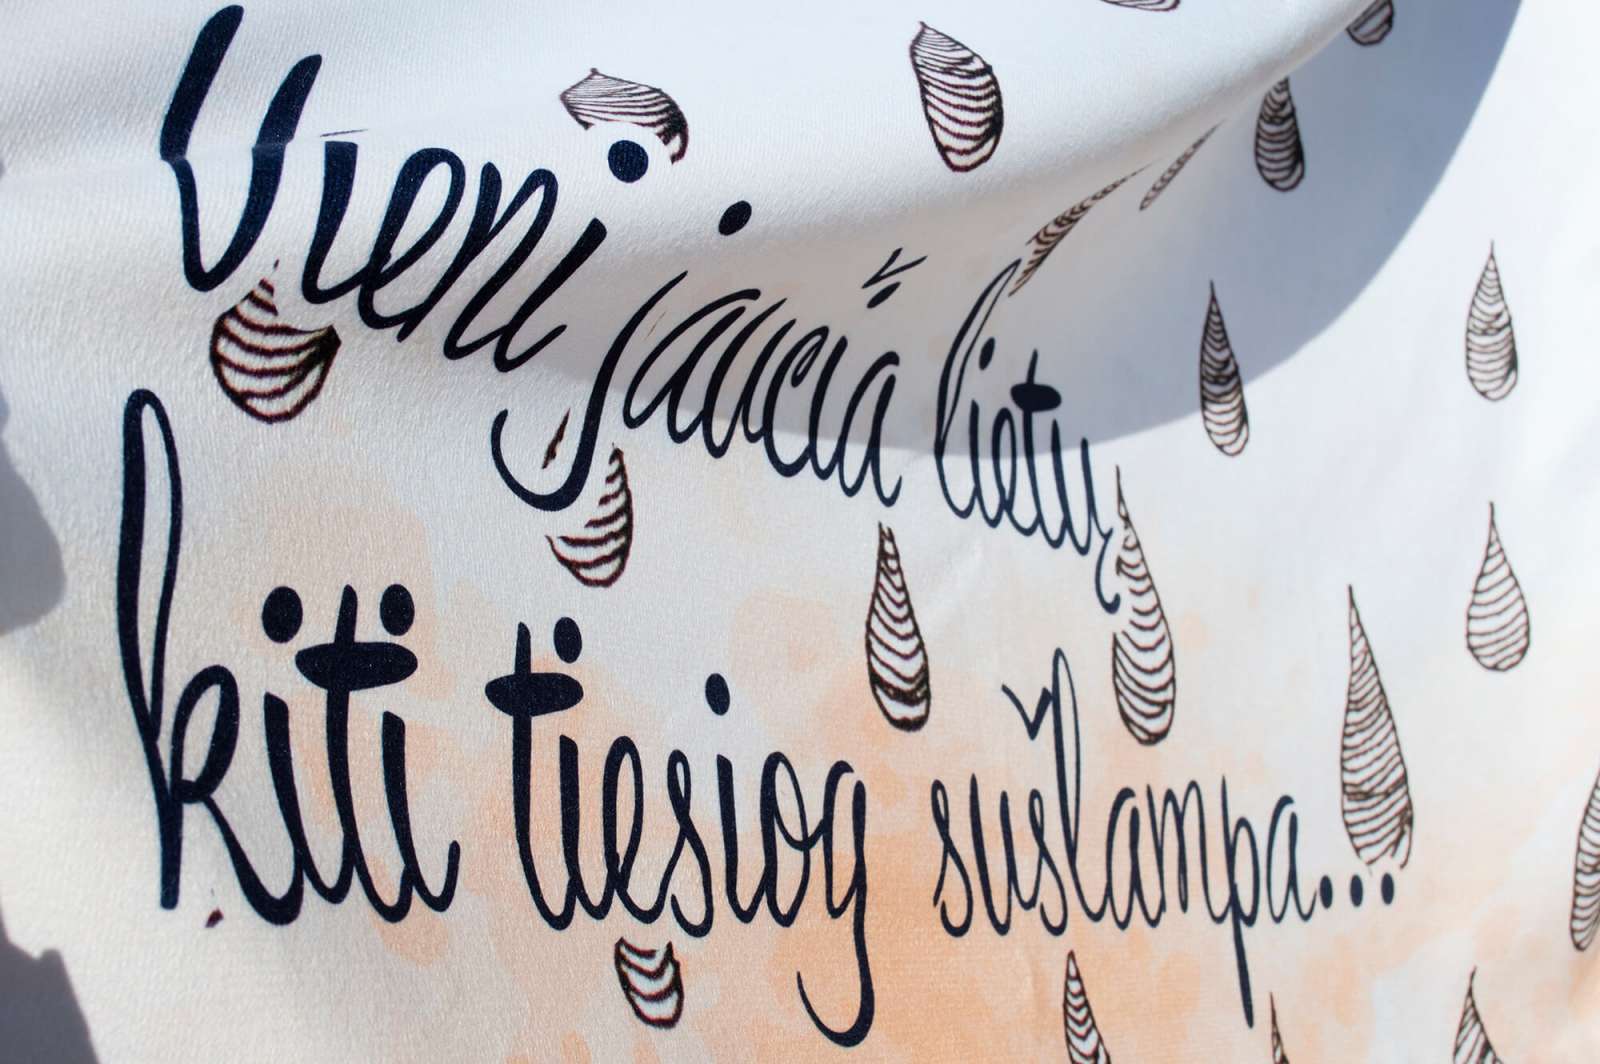 Vieni jaučia lietų
kiti tiesiog sušlampa...